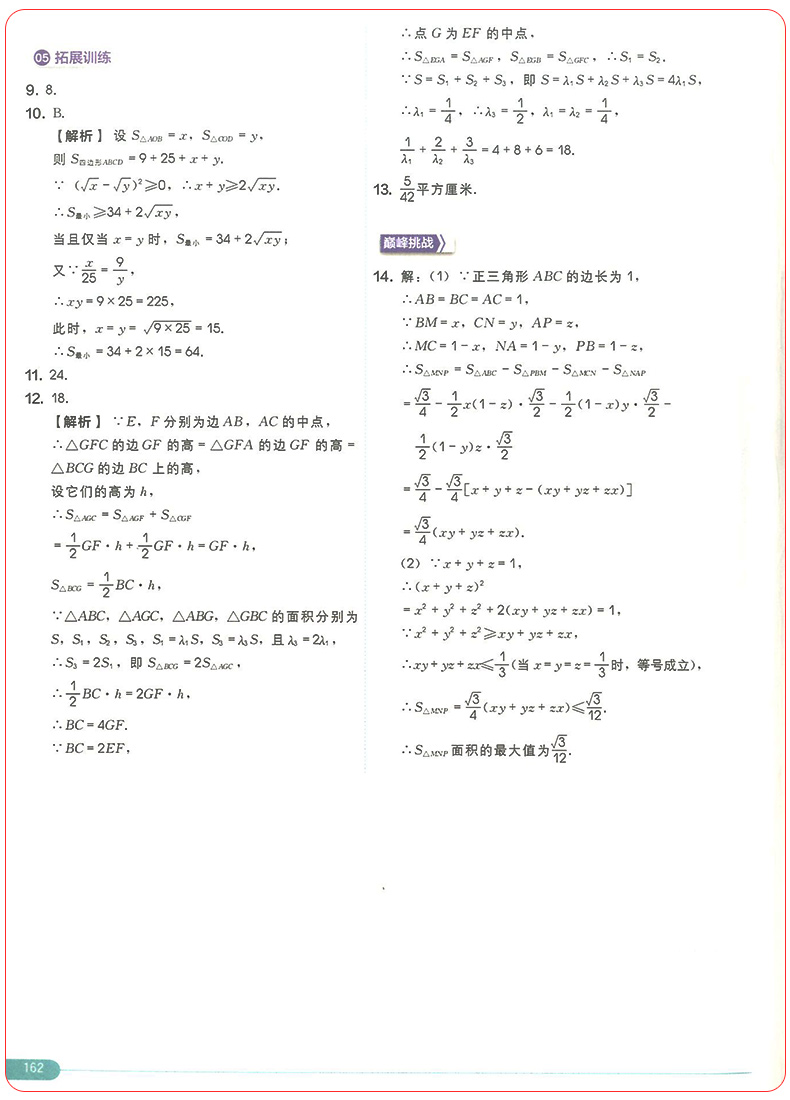 05 拓展训练
9. 8.
10. B.
【解析】 设 S△AOB = x, S△COD = y,
则 S四边形ABCD = 9 + 25 + x + y.
∵ (√x - √y)² ≥ 0, ∴ x + y ≥ 2√xy.
∴ S最小 ≥ 34 + 2√xy,
当且仅当 x = y 时, S最小 = 34 + 2√xy;
又∵ x/25 = 9/y,
∴ xy = 9 × 25 = 225,
此时, x = y = √9×25 = 15.
∴ S最小 = 34 + 2 × 15 = 64.
11. 24.
12. 18.
【解析】 ∵ E, F 分别为边 AB, AC 的中点,
∴ △GFC 的边 GF 的高 = △GFA 的边 GF 的高 =
△BCG 的边 BC 上的高,
设它们的高为 h,
∴ S△AGC = S△AGF + S△CGF
= 1/2 GF · h + 1/2 GF · h = GF · h,
S△BCG = 1/2 BC · h,
∵ △ABC, △AGC, △ABG, △GBC 的面积分别为
S, S₁, S₂, S₃, S₁ = λ₁S, S₃ = λ₃S, 且 λ₃ = 2λ₁,
∴ S₃ = 2S₁, 即 S△BCG = 2S△AGC,
∴ 1/2 BC · h = 2GF · h,
∴ BC = 4GF.
∵ BC = 2EF,
∴ 点 G 为 EF 的中点,
∴ S△EGA = S△AGF, S△EGB = S△GFC, ∴ S₁ = S₂.
∵ S = S₁ + S₂ + S₃, 即 S = λ₁S + λ₂S + λ₃S = 4λ₁S,
∴ λ₁ = 1/4, ∴ λ₃ = 1/2, λ₁ = λ₂ = 1/4,
1/λ₁ + 2/λ₂ + 3/λ₃ = 4 + 8 + 6 = 18.
13. 5/42 平方厘米.
巅峰挑战
14. 解: (1) ∵ 正三角形 ABC 的边长为 1,
∴ AB = BC = AC = 1,
∵ BM = x, CN = y, AP = z,
∴ MC = 1 - x, NA = 1 - y, PB = 1 - z,
∴ S△MNP = S△ABC - S△PBM - S△MCN - S△NAP
= √3/4 - 1/2 x(1 - z) · √3/2 - 1/2 (1 - x)y · √3/2 -
1/2 (1 - y)z · √3/2
= √3/4 - √3/4 [x + y + z - (xy + yz + zx)]
= √3/4 (xy + yz + zx).
(2) ∵ x + y + z = 1,
∴ (x + y + z)²
= x² + y² + z² + 2(xy + yz + zx) = 1,
∵ x² + y² + z² ≥ xy + yz + zx,
∴ xy + yz + zx ≤ 1/3 (当 x = y = z = 1/3 时, 等号成立),
∴ S△MNP = √3/4 (xy + yz + zx) ≤ √3/12.
∴ S△MNP 面积的最大值为 √3/12.
162